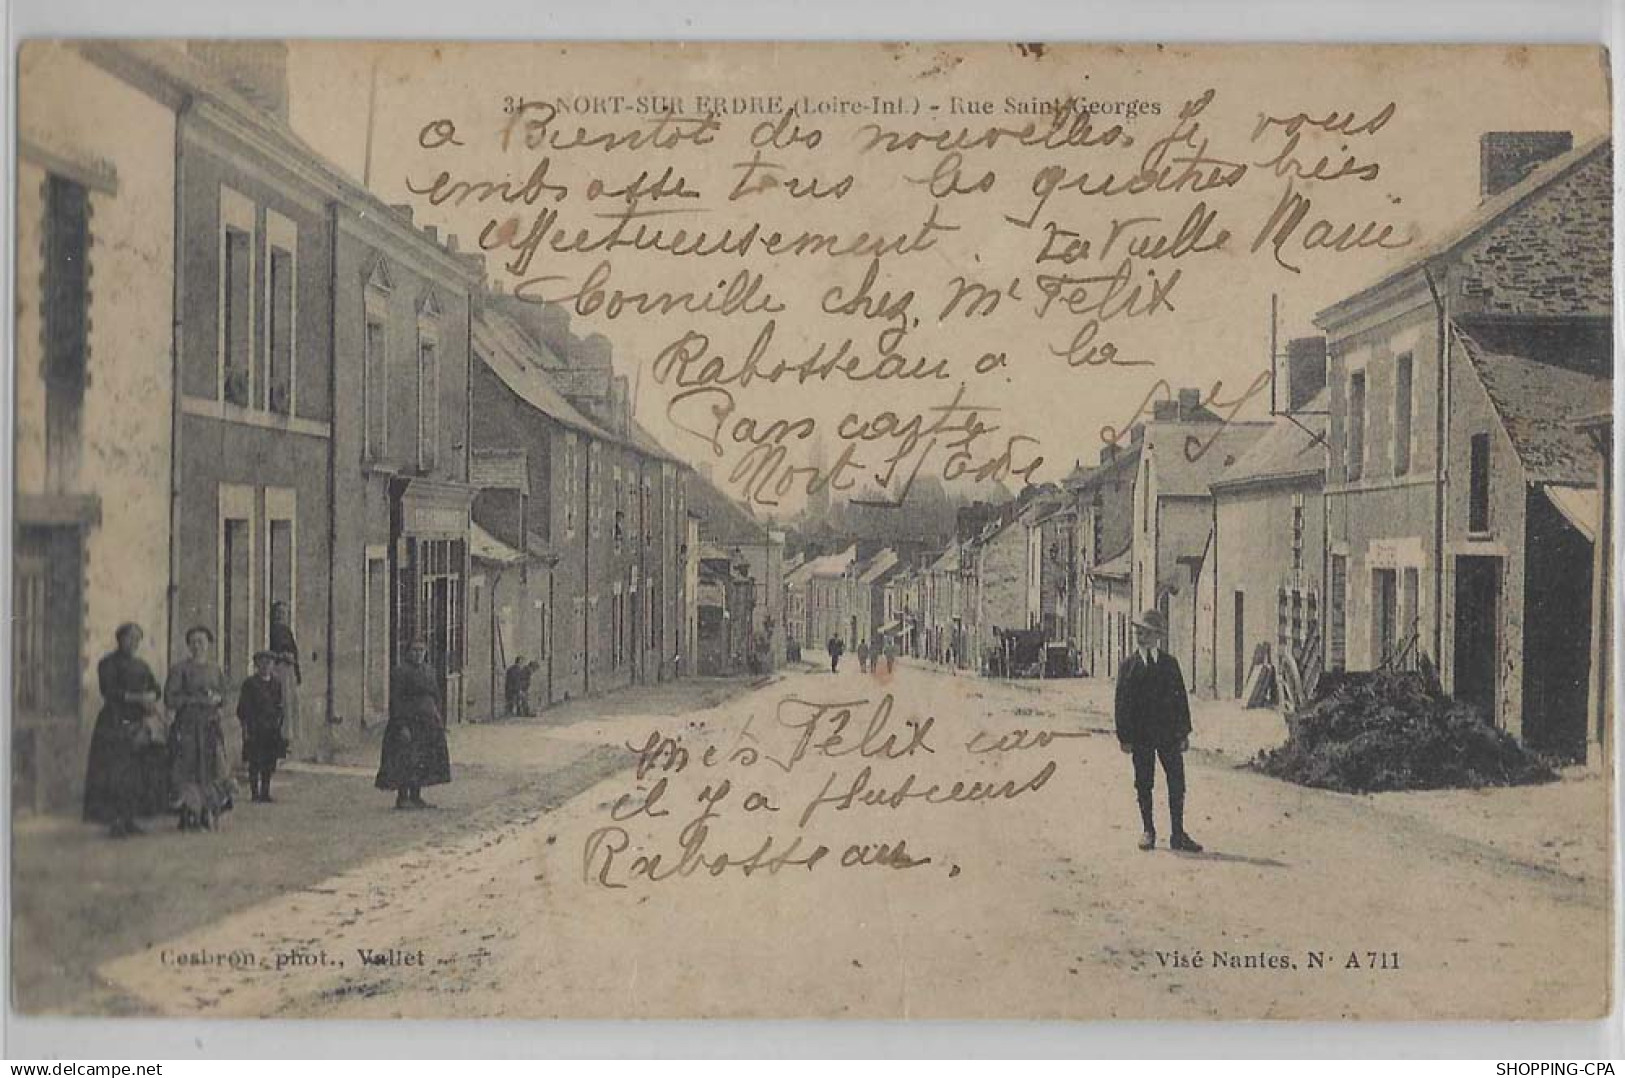 31 - NORT-SUR ERDRE (Loire-Inf.) - Rue Saint-Georges
a Bientot des nouvelles. Je vous
embrasse tous les quatres bies
affectueusement. La Vielle Marie
Cornille chez Mr Felix
Rabosseau a la
Pancarte
Nort S/ Erdre
mes Félix car
il y a plusieurs
Rabosseau.
Cesbron, phot., Vallet
Visé Nantes, N° A 711
SHOPPING-CPA